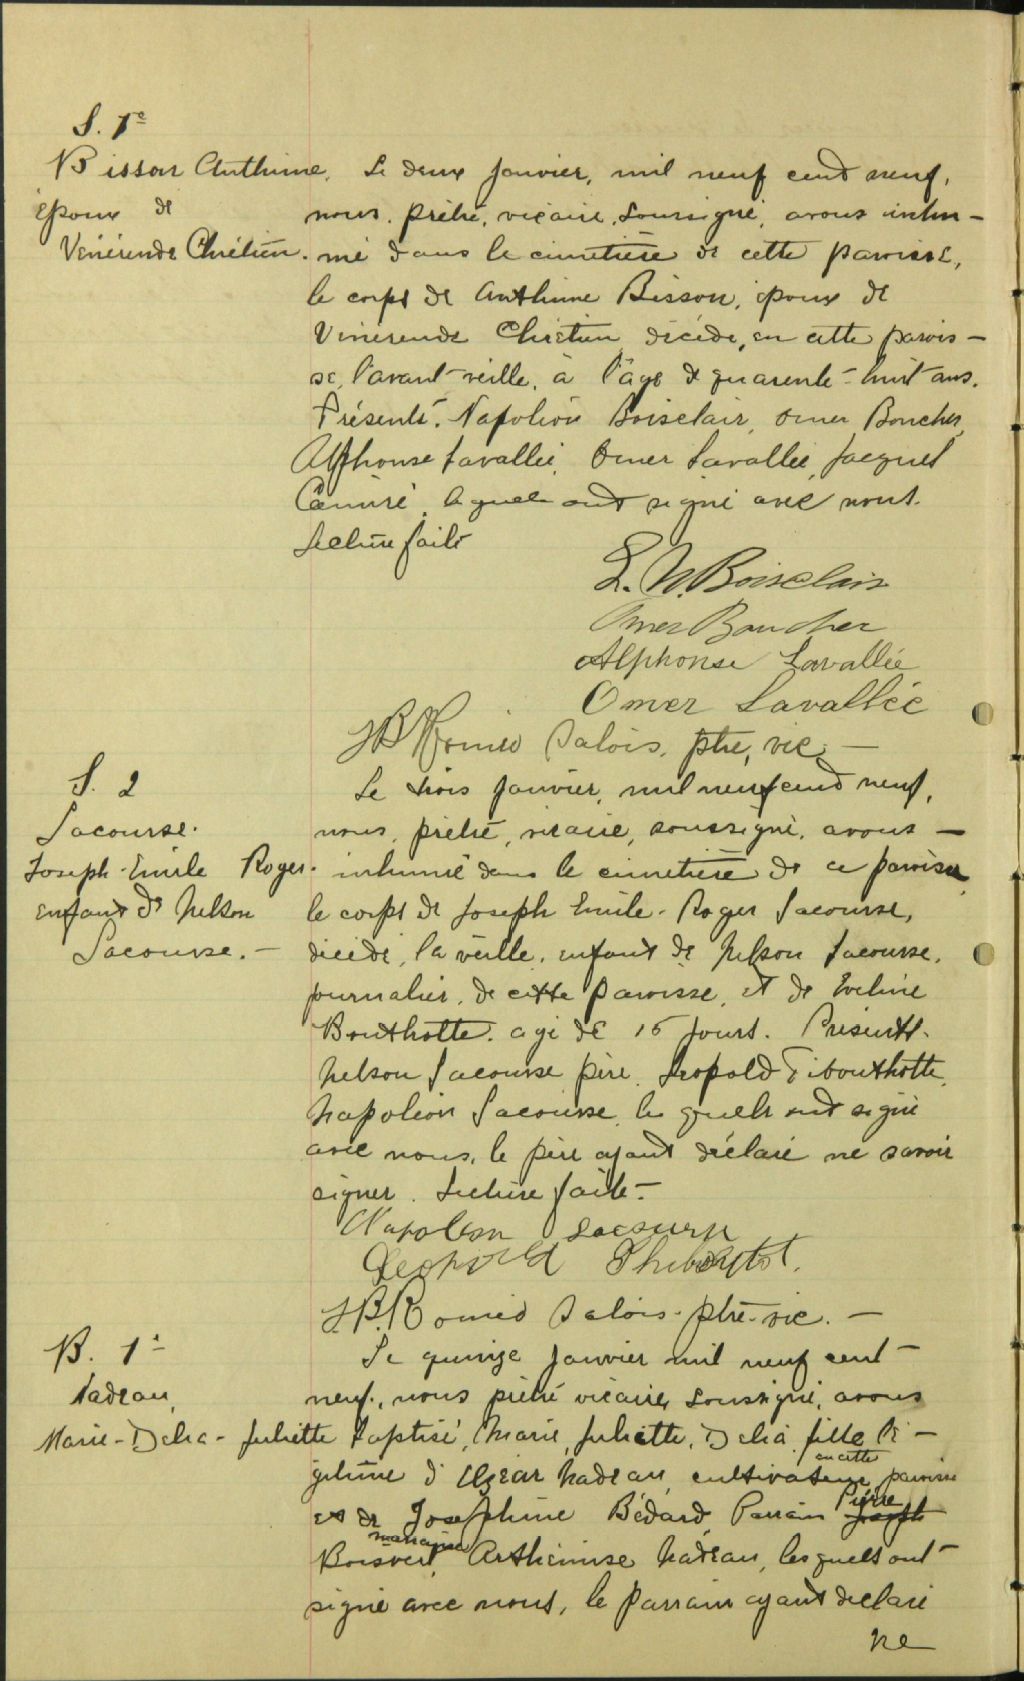 S. 1e
Bisson Anthime,
époux de
Vénérende Chrétien.
Le deux janvier, mil neuf cent neuf,
nous, prêtre, vicaire, soussigné, avons inhu-
mé dans le cimetière de cette paroisse,
le corps de Anthime Bisson, époux de
Vénérende Chrétien décédé, en cette parois-
se, l'avant-veille, à l'âge de quarante-huit ans.
Présents. Napoléon Boisclair, Omer Boucher,
Alphonse Lavallée, Omer Lavallée, Jacques
Camiré, lesquels ont signé avec nous.
Lecture faite
L. N. Boisclair
Omer Boucher
Alphonse Lavallée
Omer Lavallée
J B Roméo Salois, ptre, vic. —
S. 2
Lacourse.
Joseph-Emile Roger.
enfant de Nelson
Lacourse. —
Le trois janvier, mil neuf cent neuf,
nous, prêtré, vicaire, soussigné, avons —
inhumé dans le cimetière de ce paroisse
le corps de Joseph Emile-Roger Lacourse,
décédé, la veille, enfant de Nelson Lacourse,
journalier, de cette paroisse, et de Eveline
Bouthotte. agé de 15 jours. Présents.
Nelson Lacourse père, Léopold Tibouthotte,
Napoléon Lacourse, les quels ont signé
avec nous, le père ayant déclaré ne savoir
signer. Lecture faite. —
Napoleon Lacourse
Leopold
J.B. Roméo Salois - ptre-vic. —
B. 1e
Nadeau,
Marie-Delia-Juliette
Le quinze janvier mil neuf cent —
neuf, nous prêtré vicaire, soussigné, avons
baptisé, Marie, Juliette, Delia, fille lé-
gitime d'Elzear Nadeau, cultivateur en cette paroisse
et de Josephine Bédard, Parrain Pierre Joseph
Boisvert, marraine Arthémise Nadeau, lesquels ont
signé avec nous, le parrain ayant déclaré
ne